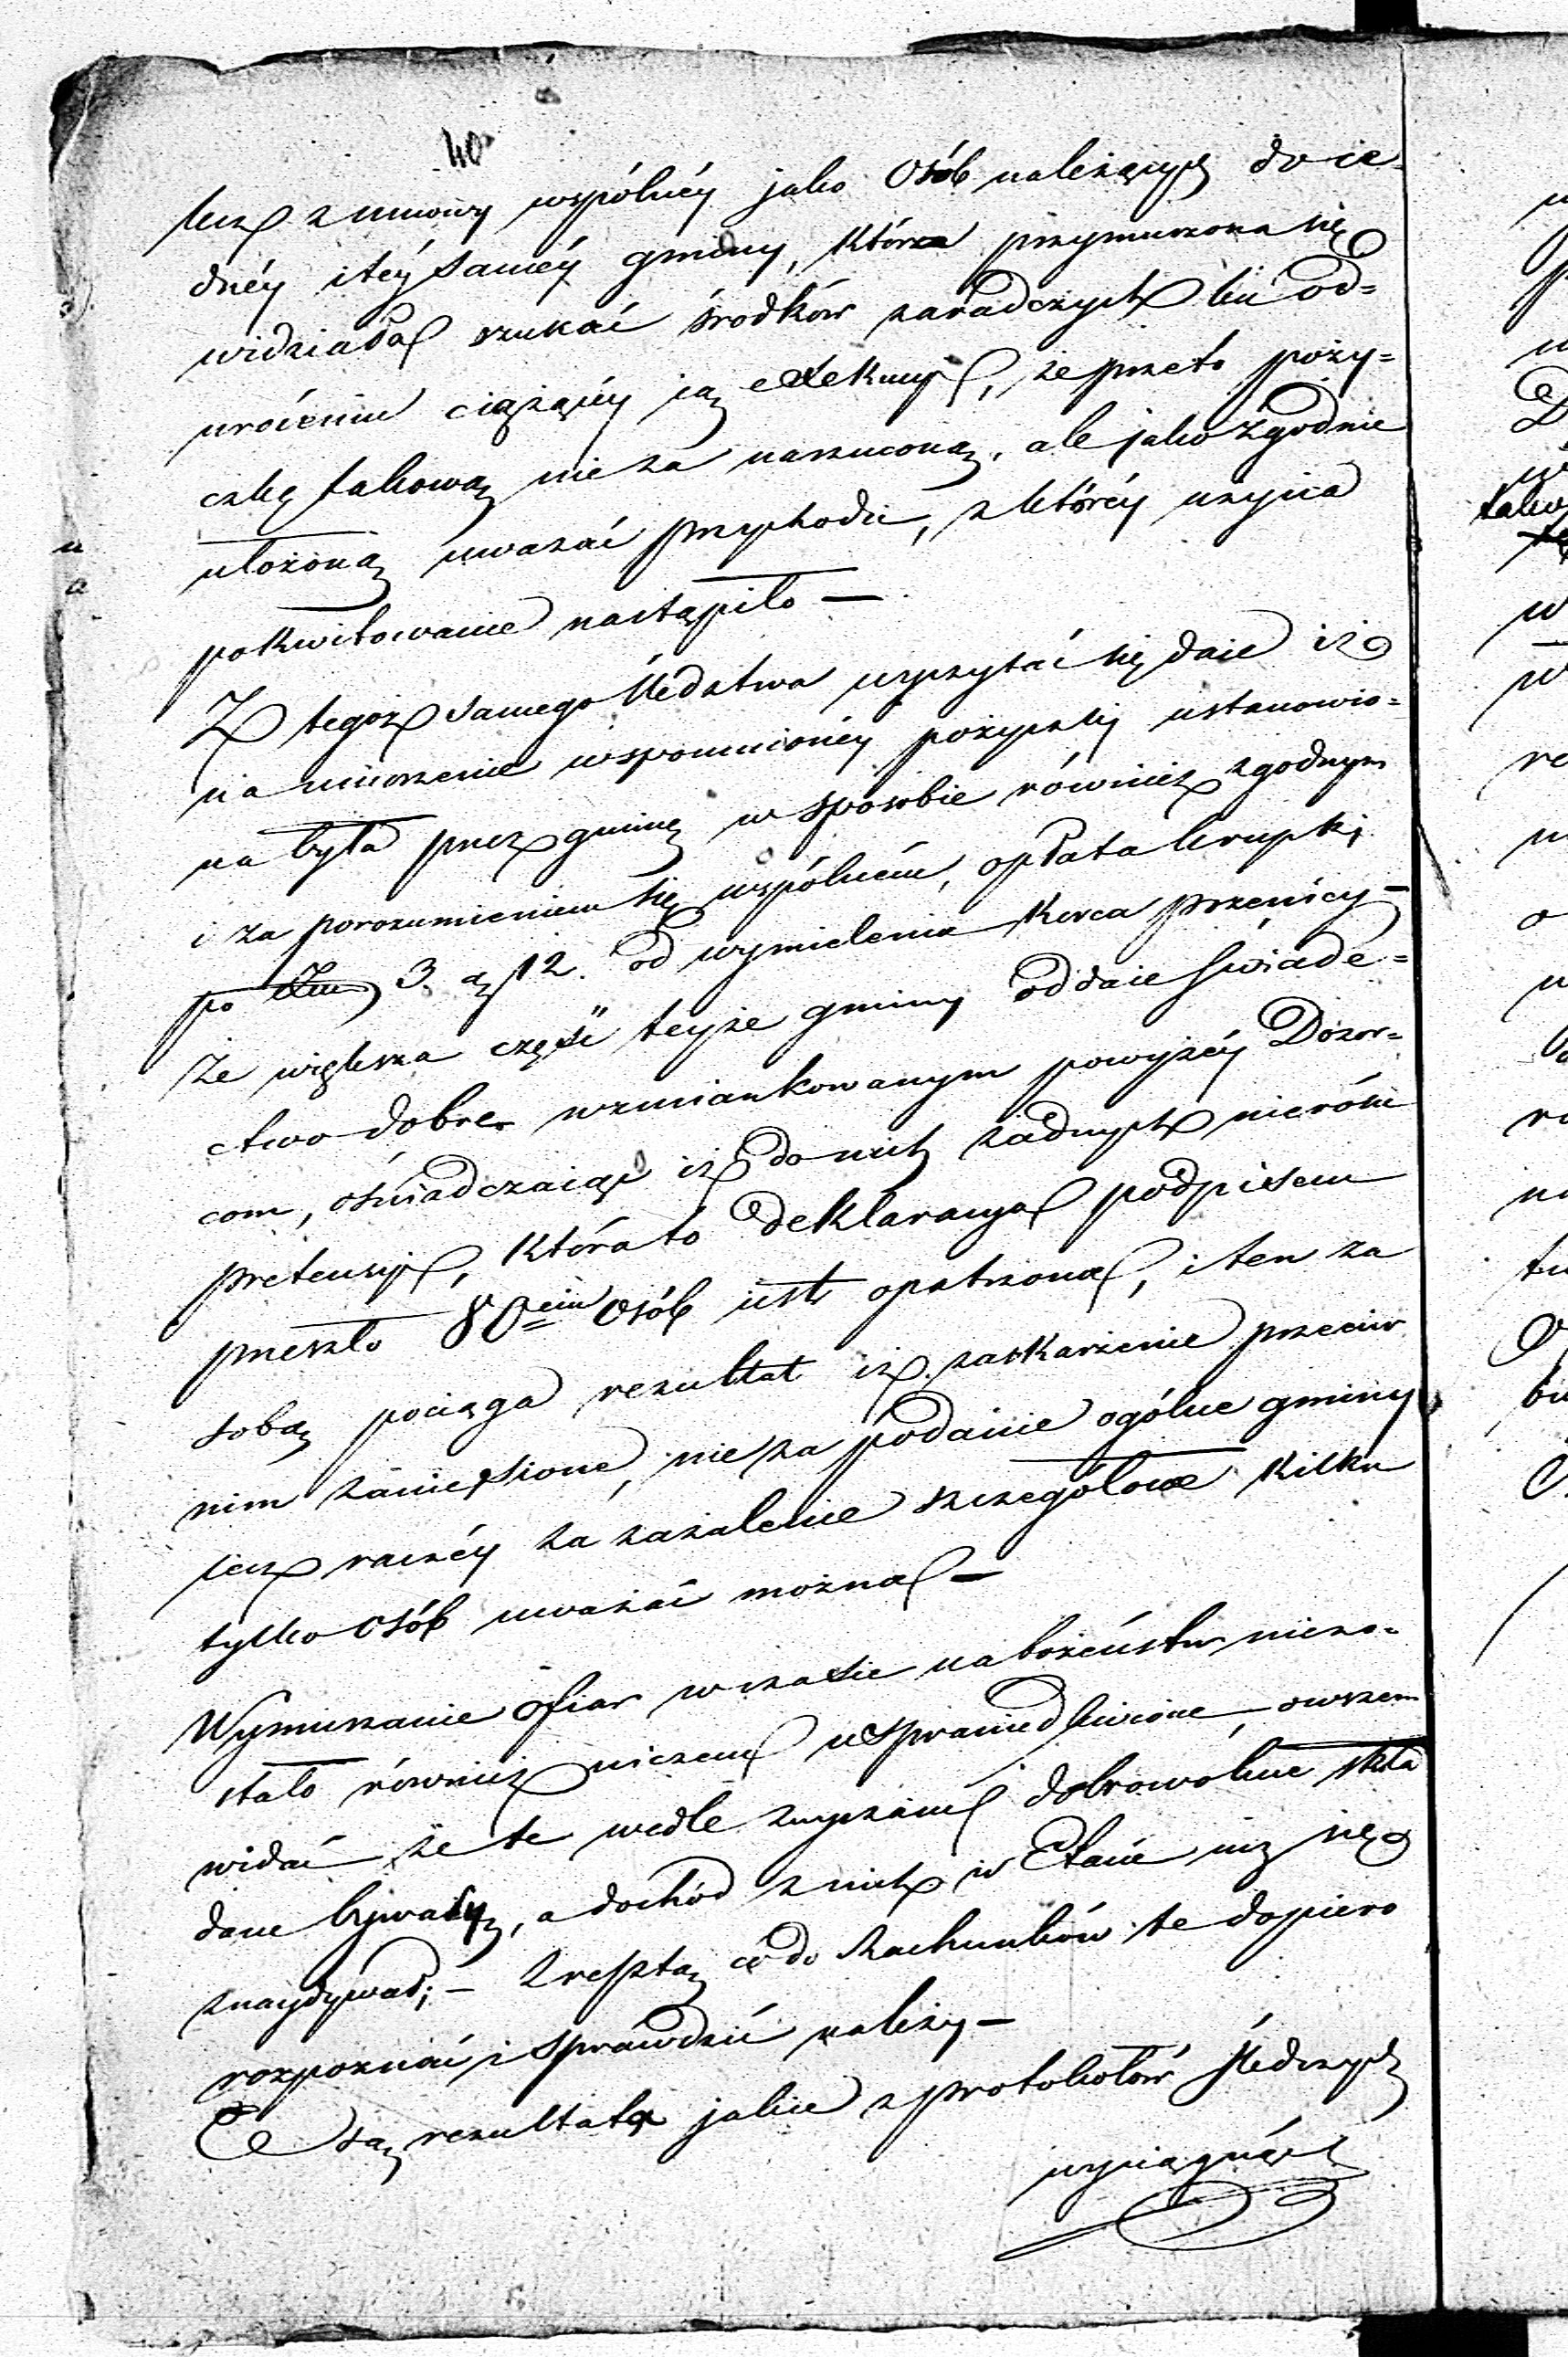 40
lecz z umowy wspólnéy jako Osób należących do ie-
dnéy i téy saméy gminy, która przymuszona się
widziała szukać środków zaradczych ku od=
wróceniu ciążącéy ią exekucyi, że przeto poży=
czkę takową nie za narzuconą, ale jako zgodnie
ułożoną uważać przychodzi, z któréy użycia
pokwitowanie nastąpiło —
Z tegoż samego śledztwa wyczytać się daie iż
na umorzenie wspomnionéy pożyczki ustanowio=
na była przez gminę w sposobie również zgodnym
i za porozumieniem się wspólném, opłata krupki
po 3. a 12. od wymielenia korca pszenicy —
Że większa część teyże gminy oddaie świade=
ctwo dobre wzmiankowanym powyżéy Dozor=
com, oświadczaiąc iż do nich żadnych nierości
pretensyi, która to deklaracya podpisem
przeszło 80ciu osób iest opatrzona, i ten za
sobą pociąga rezultat iż zaskarżenie przeciw
nim zaniesione, nie za podanie ogólne gminy
lecz raczéy za zażalenie szczegółowe kilku
tylko osób uważać można —
Wymuszanie ofiar w czasie nabożeństw niezo=
stało również niczem usprawiedliwione, owszem
widać że te wedle zwyczaiu dobrowolnie skła
dane bywały, a dochód z nich w Etacie iuż się
znaydywał; — Zresztą co do Rachunków te dopiero
rozpoznać i sprawdzić należy —
Te są rezultata jakie z protokołów śledczych
wyciągnąć